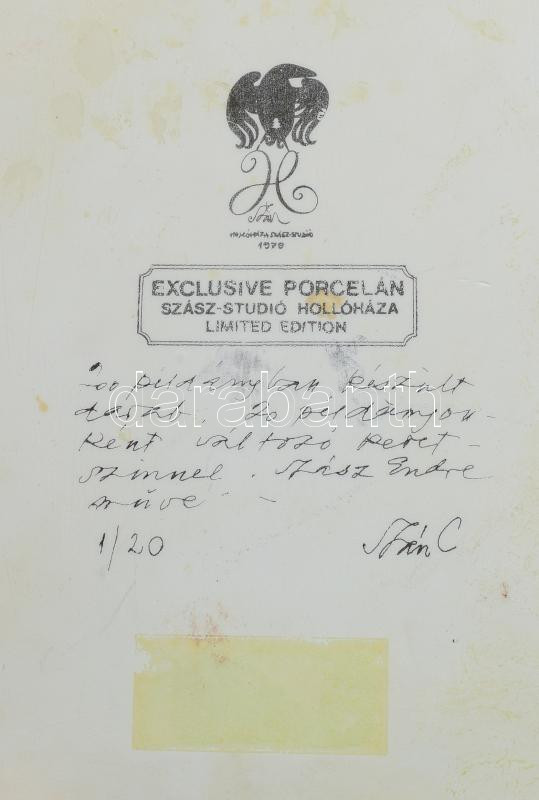 H
Szász
HOLLÓHÁZA SZÁSZ-STUDIÓ
1978
EXCLUSIVE PORCELÁN
SZÁSZ-STUDIÓ HOLLÓHÁZA
LIMITED EDITION
példányban készült
darab. 20 példányon-
ként változó keret-
színnel. Szász Endre
műve -
1/20
darabanth